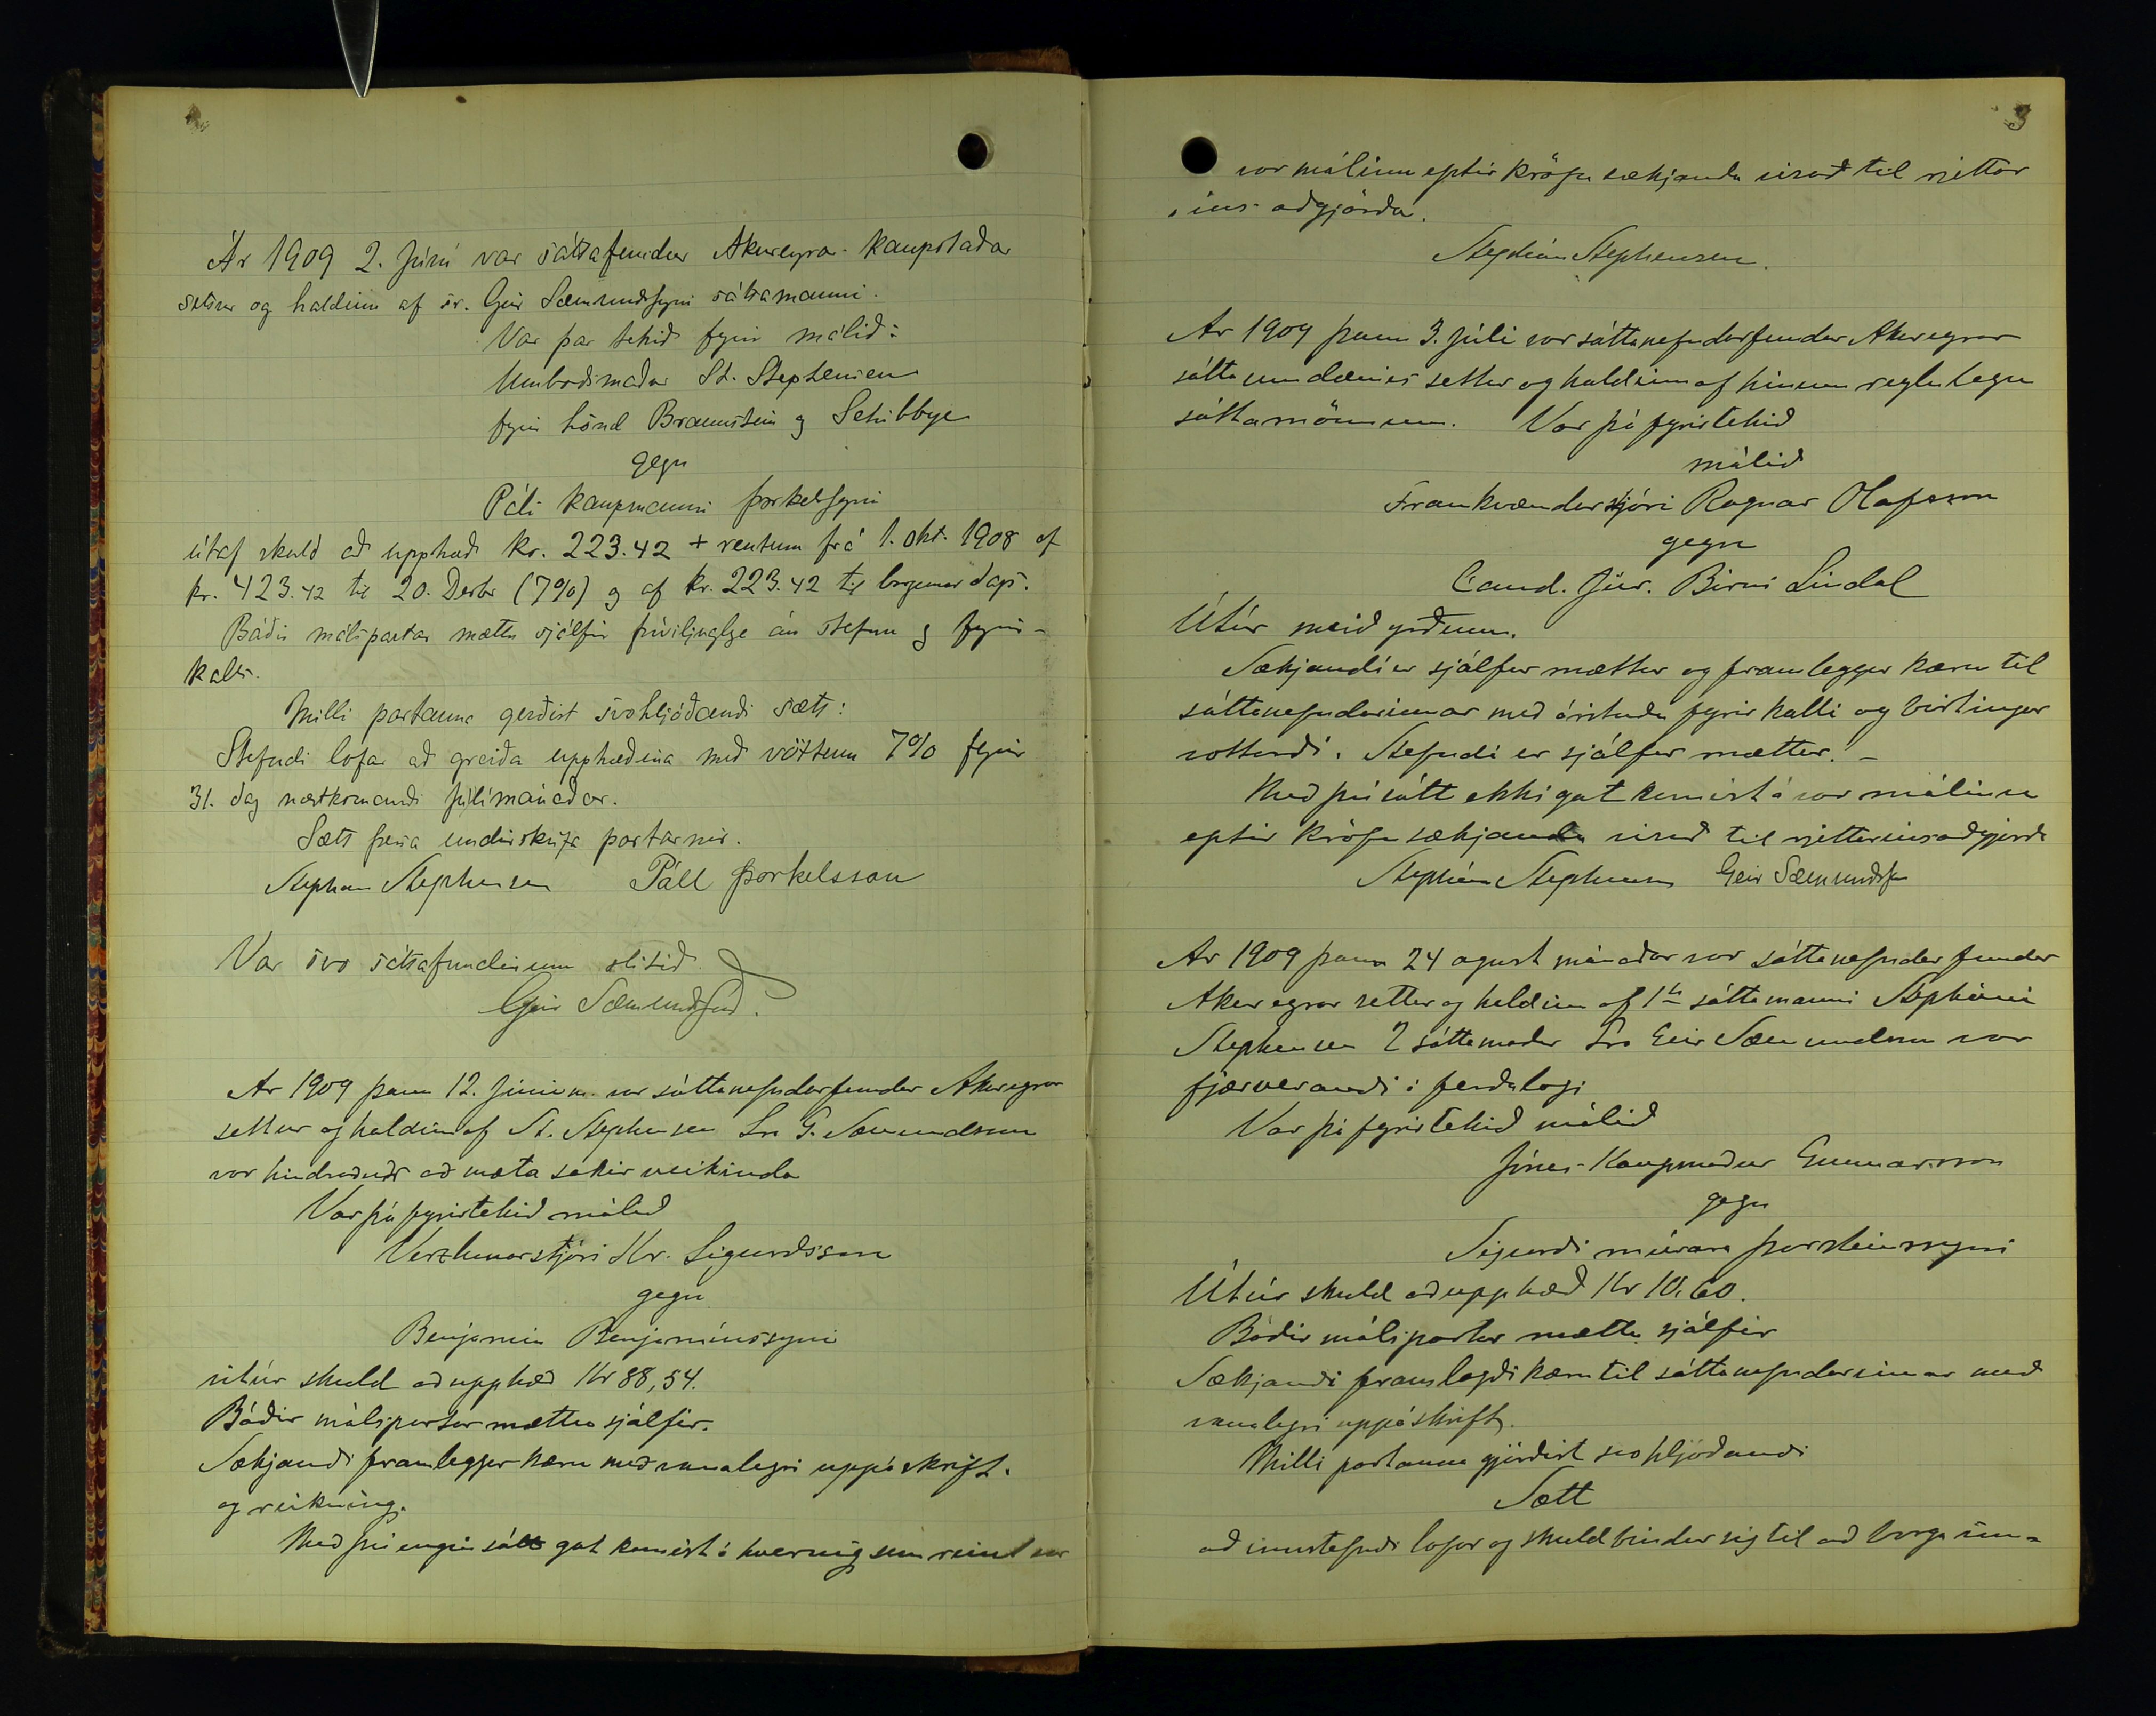 Ár 1909 2. Júní var sáttafundur Akureyrar-kaupstaðar
settur og haldinn af sr. Geir Sæmundssyni sáttamanni.
Var þar tekið fyrir málið:
Umboðsmaður St. Stephensen
fyrir hönd Braunstein og Schibbye
gegn
Páli kaupmanni Þorkelssyni
útaf skuld að upphæð kr. 223.42 + rentum frá 1. okt. 1908 af
kr. 423.42 til 20. Desbr (7%) og af kr. 223.42 til borgunardags.
Báðir málspartar mættu sjálfir fríviljuglga án stefnu og fyrir-
kalls.
Milli partanna gerðist svohljóðandi sætt:
Stefndi lofar að greiða upphæðina með vöxtum 7% fyrir
31. dag næstkomandi júlímánaðar.
Sætt þessa undirskrifa partarnir.
Stephan Stephensen Páll Þorkelsson
Var svo sáttafundinum slitið
Geir Sæmundsson.
Ar 1909 þann 12. Júní m. var sáttanefndarfundur Akureyrar
settur og haldinn af St. Stephensen Sra G. Sæmundsson
var hindraður að mæta sakir veikinda
Var þá fyrirtekið málið
Verzlunarstjóri Kr. Sigurðsson
gegn
Benjamín Benjamínssyni
útúr skuld að upphæð Kr 88,54.
Báðir málspartar mættu sjálfir.
Sækjandi framlegger kæru með vanalegri uppáskrift.
og reikning.
Með því engin sátt gat komist á hvernig sem reint var
3
var málinu eptir kröfu sækjanda vísað til rjettar
ins aðgjörða.
Stephán Stephensen.
Ar 1909 þann 3. júlí var sáttanefndarfundur Akureyrar
sáttaumdæmis settur og haldinn af hinum reglulegu
sáttamönnum. Var þá fyrirtekið
málið
Framkvændarstjóri Ragnar Olafsson
gegn
Cand. Jur. Birni Lindal
Útúr meiðyrðum.
Sækjandi er sjálfur mættur og framlegger kæru til
sáttanefndarinnar með árituðu fyrirkalli og birtingar
vottorði. Stefndi er sjálfur mættur. -
Með því sátt ekki gat komist á var málinu
eptir kröfu sækjanda vísað til rjettarinsaðgjörða
Stephán Stephensen Geir Sæmundsson
Ar 1909 þann 24 agust mánaðar var sáttanefndar fundur
Akureyrar settur og haldinn af 1ta sáttamanni Stepháni
Stephensen 2 sáttamaður Sra Geir Sæmundsson var
fjærverandi í ferðalagi
Var þá fyrirtekið málið
Jónas Kaupmaður Gunnarsson
gegn
Sigurði múrara Þorsteinssyni
Útúr skuld að upphæð Kr 10,60.
Báðir málspartar mættu sjálfir
Sækjandi framlagði kæru til sáttanefndarinnar með
vanalegri uppáskrift.
Milli partanna gjörðist svohljóðandi
Sætt
að innstefndi lofar og skuldbindur sig til að borga inn-